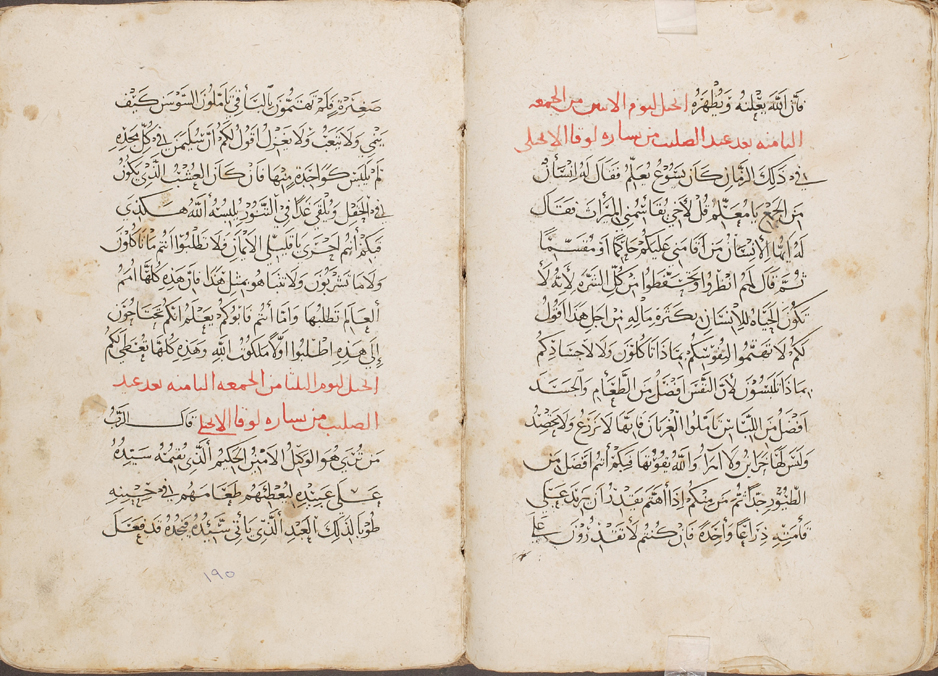 فان الله يعلنه ويظهره انجيل ليوم الاثنين من الجمعه
الثامنه بعد عيد الصليب من بشاره لوقا الانجيلي
في ذلك الزمان كان يسوع يعلم فقال له انسان
من الجمع يا معلم قل لاخي يقاسمني الميراث فقال
له ايها الانسان من اقامني عليكم حاكما او مقسما
ثم قال لهم انظروا وتحفظوا من كل الشره لانه لا
تكون الحياه للانسان بكثرة ماله من اجل هذا اقول
لكم لا تهتموا لنفوسكم بماذا تاكلون ولا لاجسادكم
بماذا تلبسون لان النفس افضل من الطعام والجسد
افضل من اللباس تاملوا الغربان فانها لا تزرع ولا تحصد
وليس لها خزاين ولا اهراء والله يقوتها فبكم انتم افضل من
الطيور جدا ثم من منكم اذا اهتم يقدر ان يزيد على
قامته ذراعا واحدة فان كنتم لا تقدرون على
صغيرة فلم تهتمون بالباقي تاملون السوسن كيف
ينمي ولا تتعب ولا تغزل اقول لكم ان سليمن في كل مجده
لم يلبس كواحدة منها فان كان العشب الذي يكون
في الحقل ويلقى غدا في التنور يلبسه الله هكذي
فبكم انتم احرى يا قليلي الايمان فلا تطلبوا انتم ما تاكلون
ولا ما تشربون ولا تتباهو بمثل هذا فان هذه كلها امم
العالم تطلبها واما انتم فابوكم يعلم انكم تحتاجون
الى هذه اطلبوا اولا ملكوت الله وهذه كلها تعطى لكم
انجيل ليوم الثلثا من الجمعه الثامنه بعد عيد
الصليب من بشاره لوقا الانجيلي قال الرب
من ترى هو الوكيل الامين الحكيم الذي يقيمه سيده
على عبيده ليعطيهم طعامهم في حينه
طوبا لذلك العبد الذي ياتي سيده فيجده قد فعل
١٩٥